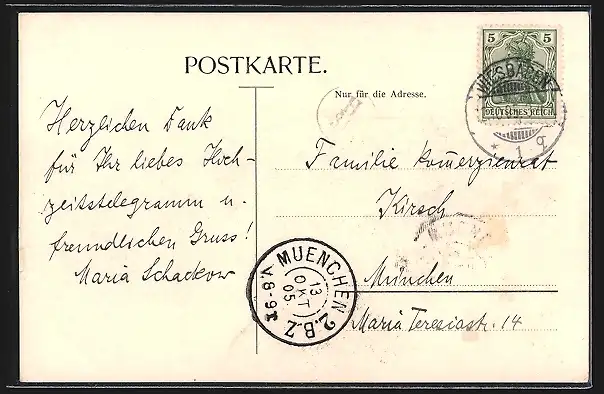 POSTKARTE.
Nur für die Adresse.
5 5
DEUTSCHES REICH
WIESBADEN
* 1 g
Herzlichen Dank
für Ihr liebes Hoch-
zeitstelegramm u.
freundlichen Gruss!
Maria Schackow
Familie Komerzienrat
Kirsch
München
Maria Teresiastr. 14
MUENCHEN
13
OKT
05
V. 8-9
2.B.Z.